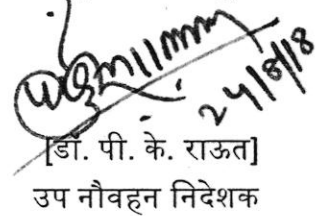 24/8/18
[डॉ. पी. के. राऊत]
उप नौवहन निदेशक